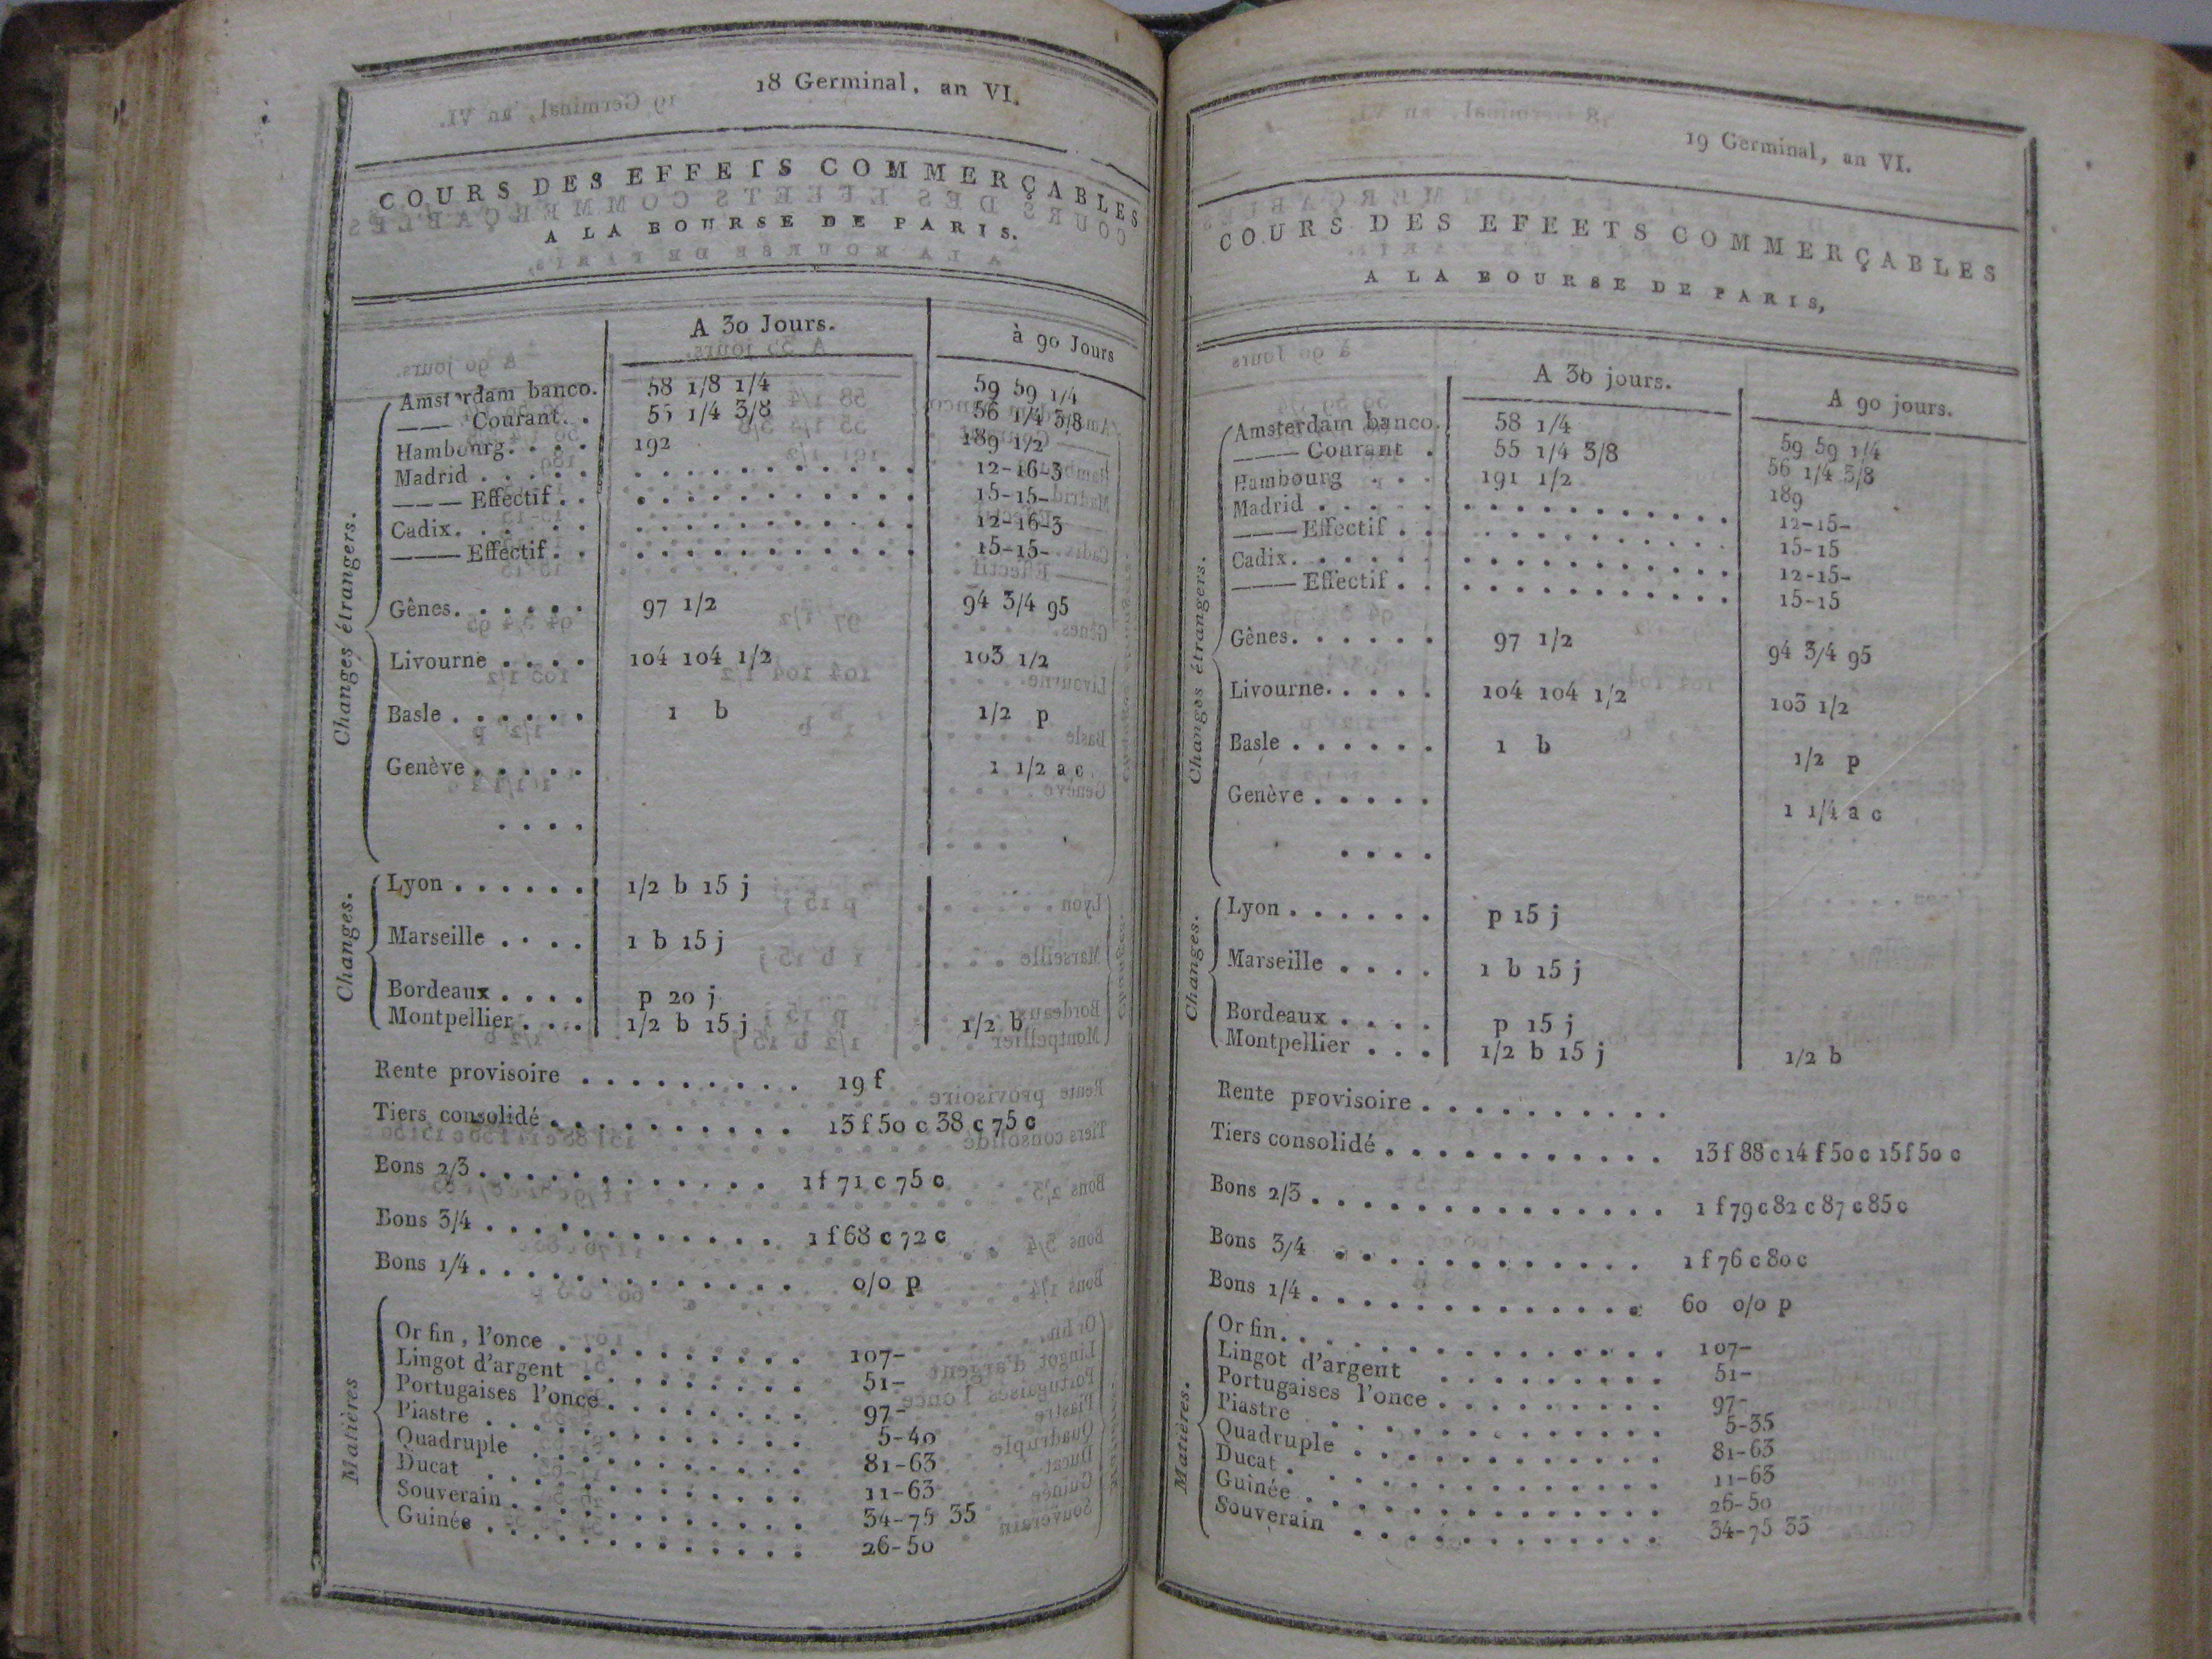 18 Germinal, an VI.
COURS DES EFFETS COMMERÇABLES
A LA BOURSE DE PARIS.
A 30 Jours. à 90 Jours
Changes étrangers.
Amsterdam banco. 58 1/8 1/4 59 59 1/4
—— Courant. . 55 1/4 3/8 56 1/4 3/8
Hambourg. . . . 192 189 1/2
Madrid . . . . . . . . . . . . . . . 12-16-3
——— Effectif . . . . . . . . . . . . 15-15-
Cadix. . . . . . . . . . . . . . . . 12-16-3
——— Effectif. . . . . . . . . . . . 15-15-
Gênes. . . . . . 97 1/2 94 3/4 95
Livourne . . . . 104 104 1/2 103 1/2
Basle . . . . . . 1 b 1/2 p
Genève . . . . . 1 1/2 a c
. . . .
Changes.
Lyon . . . . . . 1/2 b 15 j
Marseille . . . . 1 b 15 j
Bordeaux . . . . p 20 j
Montpellier . . . 1/2 b 15 j 1/2 b
Rente provisoire . . . . . . . . . 19 f
Tiers consolidé . . . . . . . . . . 13 f 50 c 38 c 75 c
Bons 2/3 . . . . . . . . . . . . 1 f 71 c 75 c
Bons 3/4 . . . . . . . . . . . . 1 f 68 c 72 c
Bons 1/4 . . . . . . . . . . . . . 0/0 p
Matières
Or fin, l'once . . . . . . . . . . 107-
Lingot d'argent . . . . . . . . . 51-
Portugaises l'once . . . . . . . . 97-
Piastre . . . . . . . . . . . . . 5-40
Quadruple . . . . . . . . . . 81-63
Ducat . . . . . . . . . . . . . 11-63
Souverain . . . . . . . . . . . . 34-75 35
Guinée . . . . . . . . . . . . . 26-50
19 Germinal, an VI.
COURS DES EFEETS COMMERÇABLES
A LA BOURSE DE PARIS,
A 30 jours. A 90 jours.
Changes étrangers.
Amsterdam banco. 58 1/4 59 59 1/4
——— Courant . 55 1/4 3/8 56 1/4 3/8
Hambourg . . . 191 1/2 189
Madrid . . . . . . . . . . . . . . . 12-15-
——— Effectif . . . . . . . . . . . . 15-15
Cadix. . . . . . . . . . . . . . . . 12-15-
——— Effectif . . . . . . . . . . . . 15-15
Gênes. . . . . . 97 1/2 94 3/4 95
Livourne. . . . . 104 104 1/2 103 1/2
Basle . . . . . . 1 b 1/2 p
Genève . . . . . 1 1/4 a c
. . . .
Changes.
Lyon . . . . . . p 15 j
Marseille . . . . 1 b 15 j
Bordeaux . . . . p 15 j
Montpellier . . . 1/2 b 15 j 1/2 b
Rente provisoire . . . . . . . . . .
Tiers consolidé . . . . . . . . . . . 13 f 88 c 14 f 50 c 15 f 50 c
Bons 2/3 . . . . . . . . . . . . . . 1 f 79 c 82 c 87 c 85 c
Bons 3/4 . . . . . . . . . . . . 1 f 76 c 80 c
Bons 1/4 . . . . . . . . . . . . . 60 0/0 p
Matières.
Or fin. . . . . . . . . . . . . . . 107-
Lingot d'argent . . . . . . . . . 51-
Portugaises l'once . . . . . . . . . 97-
Piastre . . . . . . . . . . . . . 5-35
Quadruple . . . . . . . . . . . . 81-63
Ducat . . . . . . . . . . . . . . 11-63
Guinée . . . . . . . . . . . . . . 26-50
Souverain . . . . . . . . . . . . 34-75 35